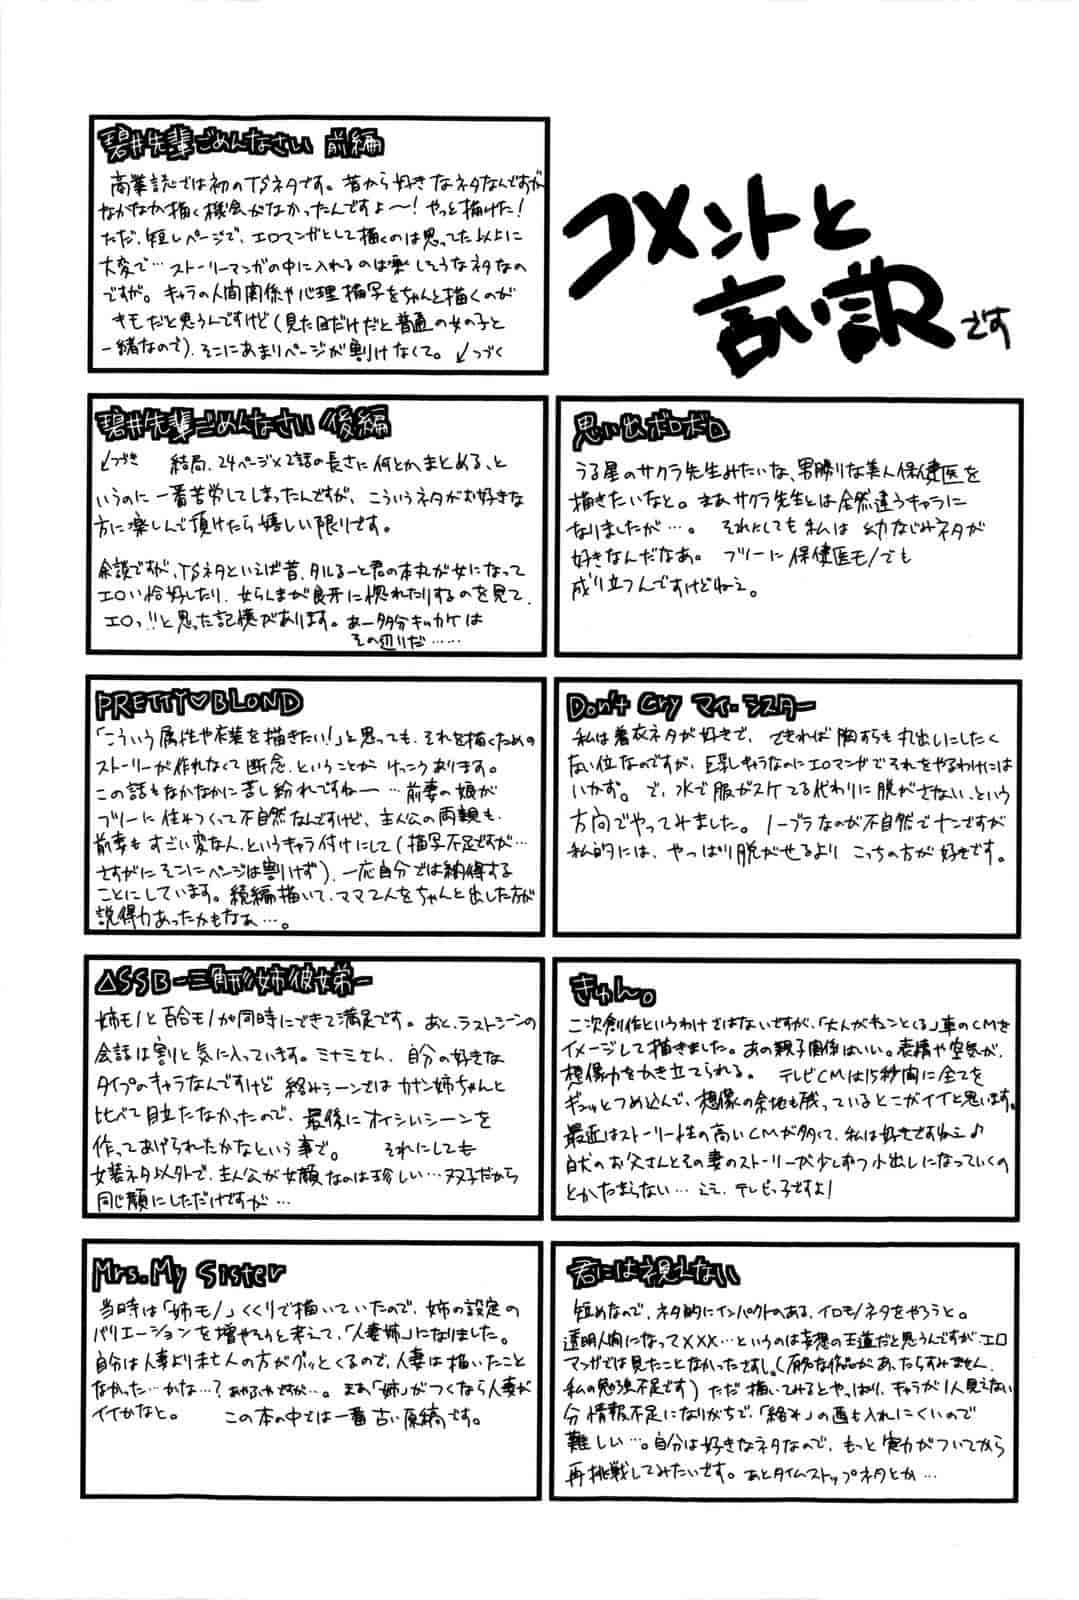 コメントと
言い訳です
碧井先輩ごめんなさい 前編
商業誌では初のTSネタです。昔から好きなネタなんですが
なかなか描く機会がなかったんですよ〜!やっと描けた!
ただ、短いページで、エロマンガとして描くのは思ってた以上に
大変で…ストーリーマンガの中に入れるのは楽しそうなネタなの
ですが。キャラの人間関係や心理描写をちゃんと描くのが
キモだと思うんですけど(見た目だけだと普通の女の子と
一緒なので)、そこにあまりページが割けなくて。↙つづく
碧井先輩ごめんなさい 後編
↙つづき 結局、24ページ×2話の長さに何とかまとめる、と
いうのに一番苦労してしまったんですが、こういうネタがお好きな
方に楽しんで頂けたら嬉しい限りです。
余談ですが、TSネタといえば昔、タルるーと君の本丸が女になって
エロい恰好したり、女らんまが良牙に惚れたりするのを見て、
エロっ!!と思った記憶があります。あー多分キッカケは
その辺りだ……
思い出ボロボロ
うる星のサクラ先生みたいな、男勝りな美人保健医を
描きたいなと。まあサクラ先生とは全然違うキャラに
なりましたが…。 それにしても私は幼なじみネタが
好きなんだなあ。 フツーに保健医モノでも
成り立つんですけどねえ。
PRETTY♡BLOND
「こういう属性や衣装を描きたい!」と思っても、それを描くための
ストーリーが作れなくて断念、ということがけっこうあります。
この話もなかなかに苦し紛れですねー…前妻の娘が
フツーに住みつくって不自然なんですけど、主人公の両親も、
前妻もすごい変な人、というキャラ付けにして(描写不足ですが…
さすがにそこにページは割けず)、一応自分では納得する
ことにしています。続編描いて、ママ2人をちゃんと出した方が
説得力あったかもなぁ…。
Don't Cry マイ・シスター
私は着衣ネタが好きで、できれば胸すらも丸出しにしたく
ない位なのですが、巨乳キャラなのにエロマンガでそれをやるわけには
いかず。で、水で服がスケてる代わりに脱がさない、という
方向でやってみました。ノーブラなのが不自然でナニですが
私的には、やっぱり脱がせるよりこっちの方が好きです。
△SSB-三角形姉彼妹弟-
姉モノと百合モノが同時にできて満足です。あと、ラストシーンの
会話は割と気に入っています。ミナミさん、自分の好きな
タイプのキャラなんですけど絡みシーンではカナン姉ちゃんと
比べて目立たなかったので、最後にオイシいシーンを
作ってあげられたかなという事で。 それにしても
女装ネタ以外で、主人公が女顔なのは珍しい…双子だから
同じ顔にしただけですが…
きゅん。
二次創作というわけではないですが、「大人がキュンとくる」車のCMを
イメージして描きました。あの親子関係はいい。表情や空気が、
想像力をかき立てられる。 テレビCMは15秒間に全てを
ギュッとつめ込んで、想像の余地も残っているとこがイイと思います。
最近はストーリー性の高いCMが多くて、私は好きですねえ♪
白犬のお父さんとその妻のストーリーが少しずつ小出しになっていくの
とかたまらない…ええ、テレビっ子ですよ!
Mrs.My Sister
当時は「姉モノ」くくりで描いていたので、姉の設定の
バリエーションを増やそうと考えて、「人妻姉」になりました。
自分は人妻より未亡人の方がグッとくるので、人妻は描いたこと
なかった…かな…?あやふやですが…。まあ「姉」がつくなら人妻が
イイかなと。 この本の中では一番古い原稿です。
君には視えない
短めなので、ネタ的にインパクトのある、イロモノネタをやろうと。
透明人間になって×××…というのは妄想の王道だと思うんですが、エロ
マンガでは見たことなかったですし。(有名な作品があったらすみません、
私の勉強不足です)ただ描いてみるとやっぱり、キャラが1人見えない
分情報不足になりがちで、「絡み」の画も入れにくいので
難しい…。自分は好きなネタなので、もっと実力がついてから
再挑戦してみたいです。あとタイムストップネタとか…